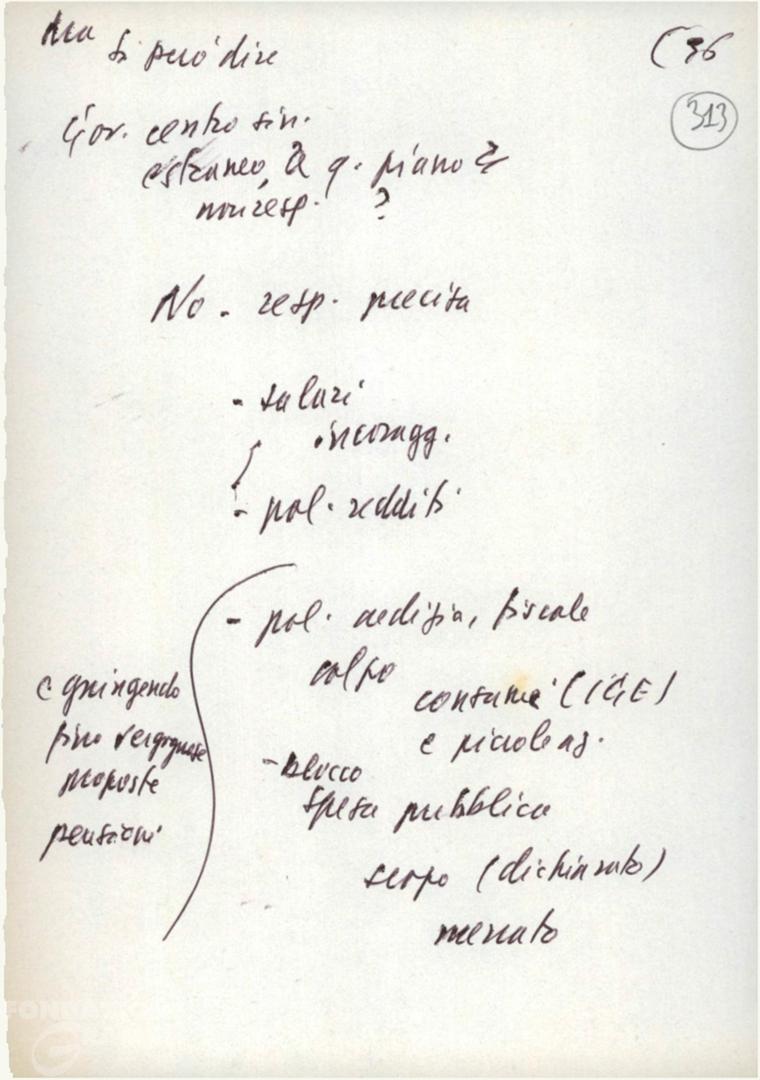 Ma
si può dire
(36
313
Gov. centro sin.
estraneo, a q. piano?
non resp. ?
No - resp. precisa
- salari
incoragg.
- pol. redditi
- pol. creditizia, fiscale
colpo
consumi (IGE)
e piccole az.
- blocco
spesa pubblica
scopo (dichiarato)
mercato
e giungendo
fino vergognose
proposte
pensioni
FONDAZIO